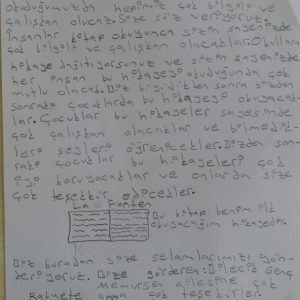 okuduğumuzda hepimiz çok bilgili ve
çalışkan oluruz. Size söz veriyoruz.
İnsanlar kitap okuyunca sizin sayenizde
çok bilgili ve çalışkan olacaklar. Okullara
hikaye dağıtıyorsunuz ve sizin sayenizde
her insan bu hikayeyi okuduğunda çok
mutlu olacak. Biz büyüdükten sonra bizden
sonraki çocuklarda bu hikayeyi okuyacak
lar. Çocuklar bu hikayeler sayesinde
çok çalışkan olacaklar ve bilmedik
leri şeyleri öğrenecekler. Bizden son
raki çocuklar bu hikayeleri çok
iyi koruyacaklar ve onlarda size
çok teşekkür edecekler.
La Fonten
Bu kitap benim ilk
okuyacağım hikayedir.
Biz buradan size selamlarımızı gön
deriyoruz. Bize gönderen: Bilecik Genç
Memursen ailesine çok
teşekkürler.